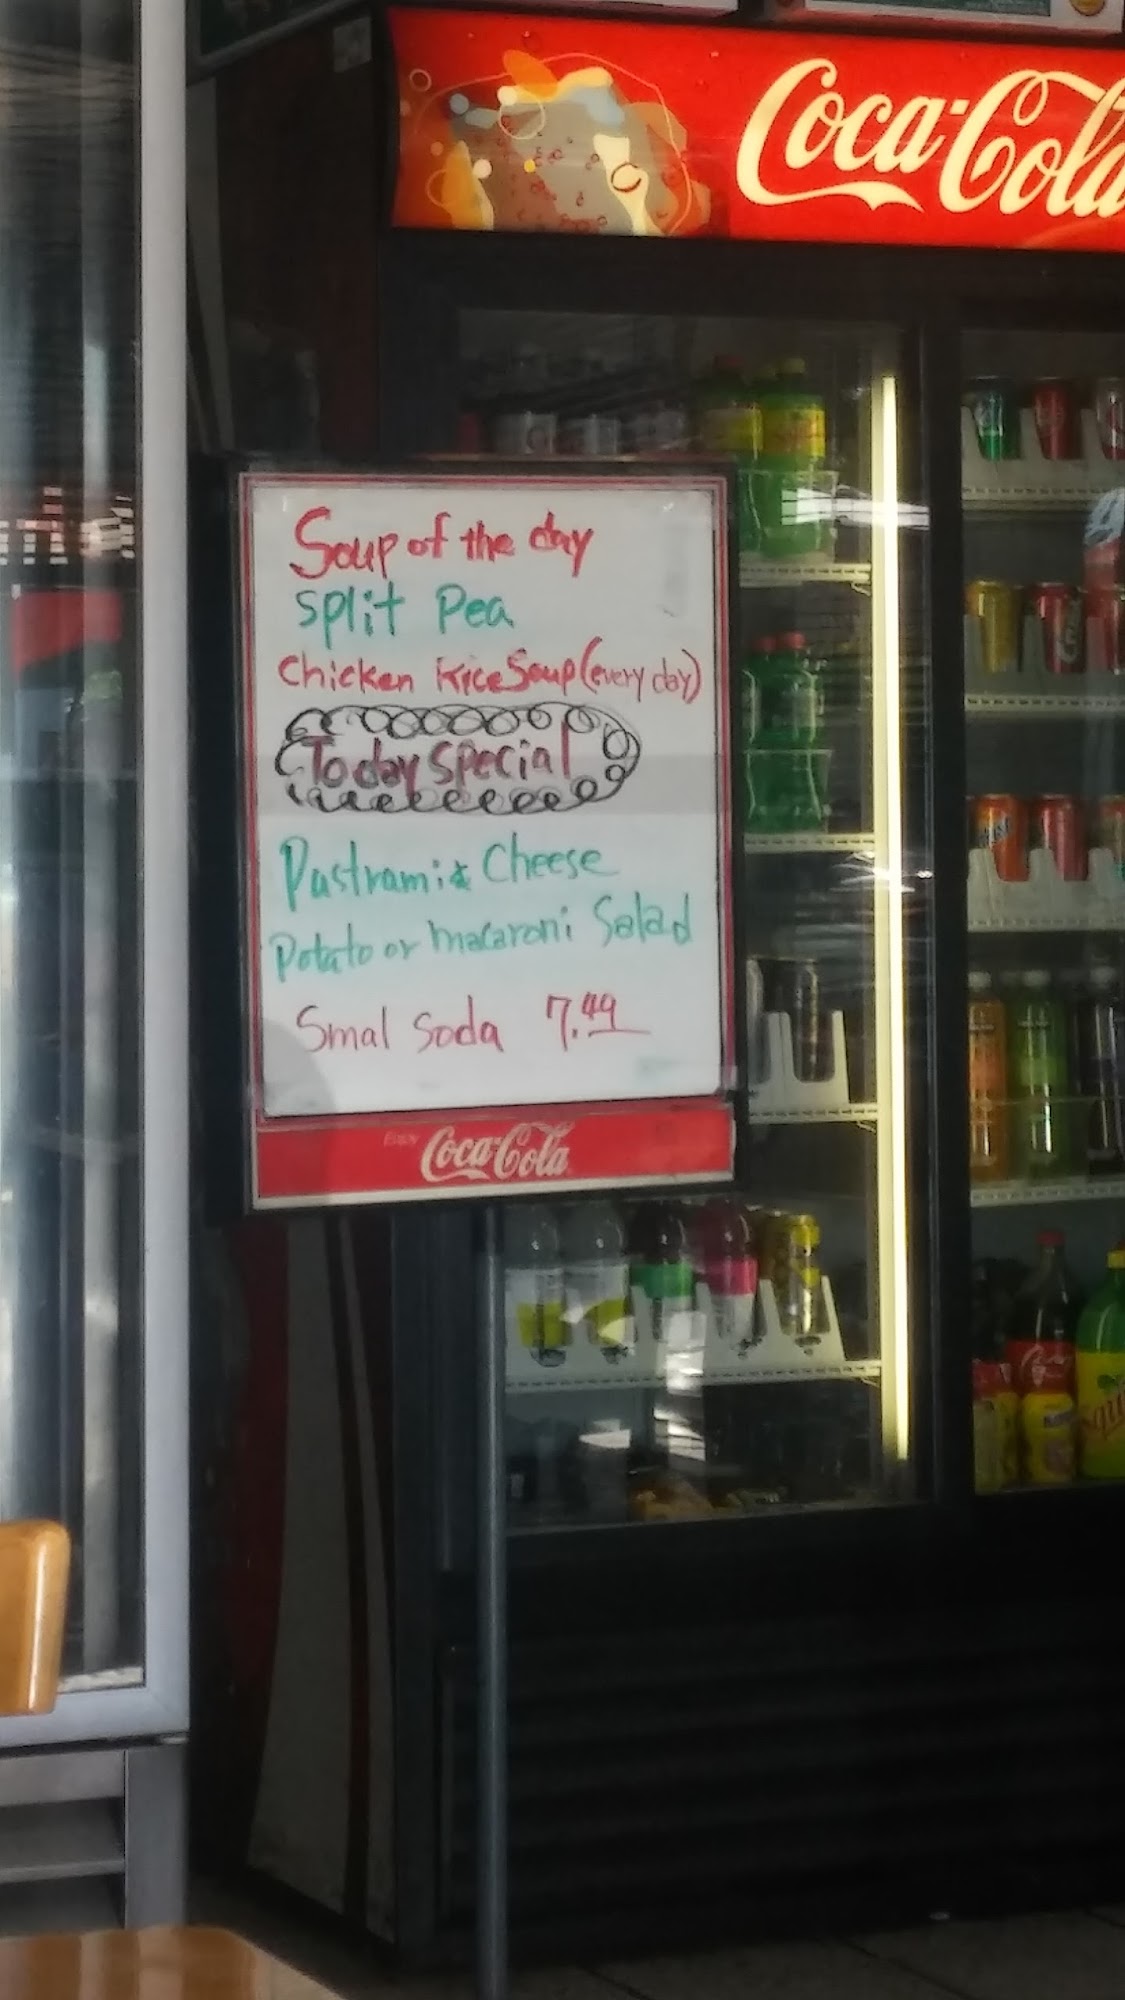 Coca-Cola
Soup of the day
split Pea
Chicken Rice Soup (every day)
Today special
Pastrami & Cheese
Potato or macaroni Salad
Smal soda 7.49
Enjoy Coca-Cola